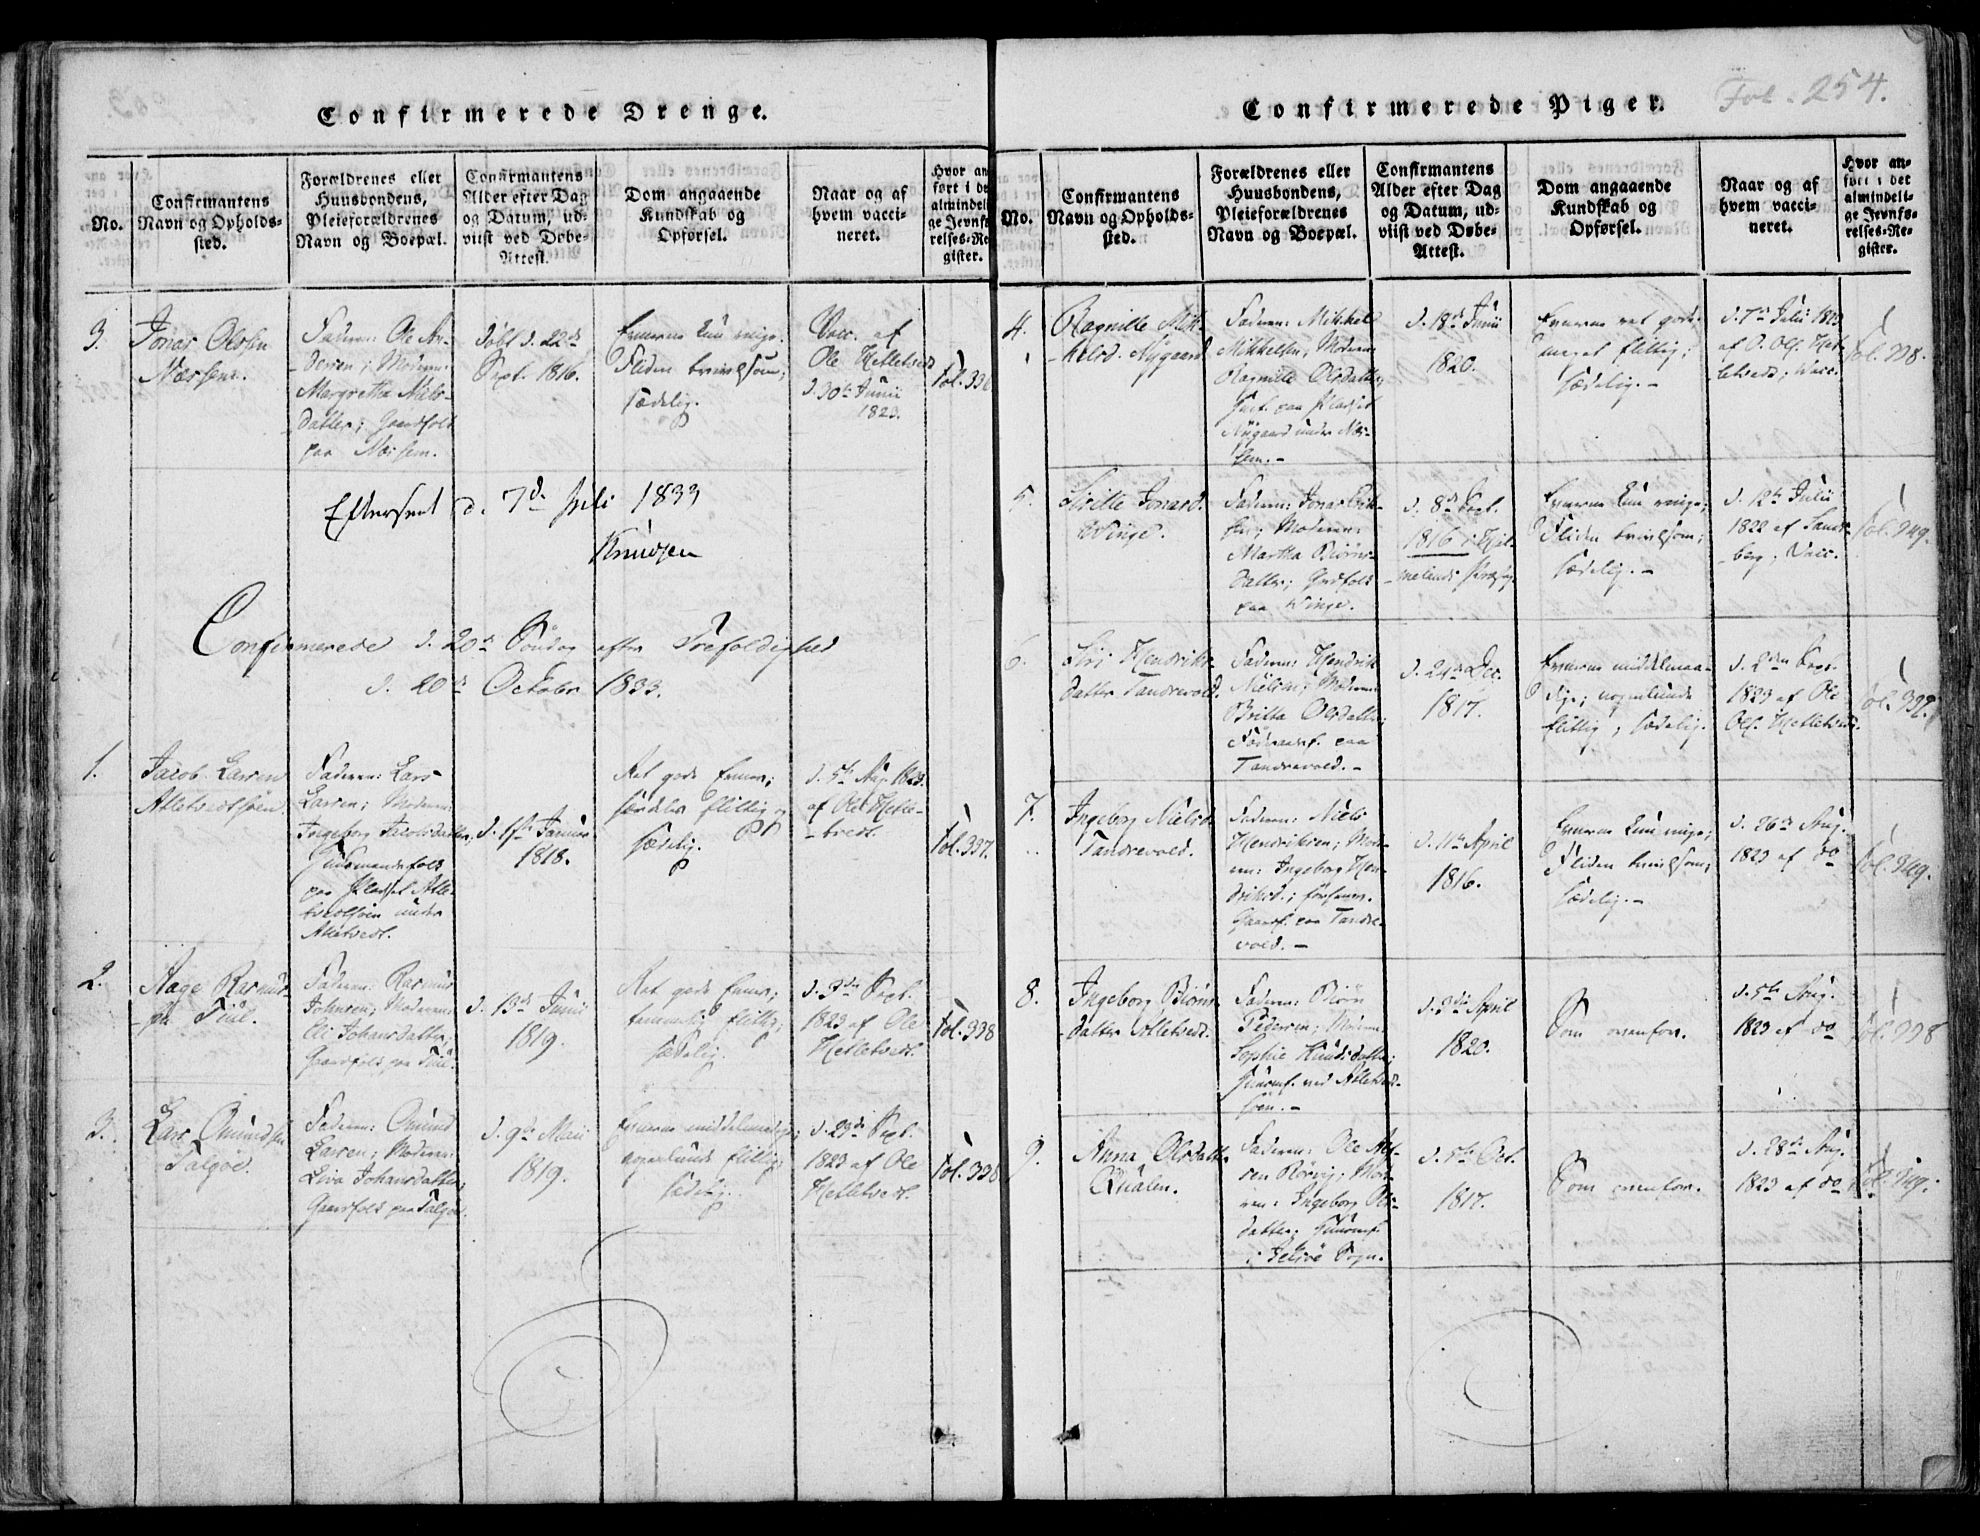 Confirmerede Drenge.
No.
Confirmantens
Navn og Opholds-
sted.
Forældrenes eller
Huusbondens,
Pleieforældrenes
Navn og Boepæl.
Confirmantens
Alder efter Dag
og Datum, ud-
viist ved Døbe-
Attest.
Dom angaaende
Kundskab og
Opførsel.
Naar og af
hvem vacci-
neret.
Hvor an-
ført i det
almindeli-
ge Jevnfø-
relses-Re-
gister.
3.
Jonas Olsen
Næssem.
Faderen: Ole An-
Moderen:
Margretha Niels-
datter; Gaardfolk
paa Næssem.
Døbt d. 22de
Sept. 1816.
Evnerne kun ringe.
Fliden
sædelig.
Vacc. af
Ole Helletvedt
d. 30te Junii
1823.
Fol. 336
Efterseet d. 7de Juli 1833
Knudsen
Confirmerede d. 20de Søndag efter Trefoldighed
d. 20de October 1833.
1.
Jacob Larsen
Alletvedtsøen
Faderen: Lars
Larsen; Moderen:
Ingeborg Jacobsdatter;
Huusmandsfolk
paa Pladset Alle-
tvedtsøen under
Alletvedt.
d. 1ste Januar
1818.
Ret gode Evner;
særdeles flittig og
sædelig.
d. 5te Aug. 1823.
af Ole Helle-
tvedt.
Fol. 337.
2.
Aage Rasmus-
sen Tuul.
Faderen: Rasmus
Johnsen; Moderen:
Johansdatter;
Gaardfolk paa
d. 13de Junii
1819.
Ret gode Evner;
temmelig flittig;
sædelig.
d. 3die Sept.
1823 af Ole
Helletvedt.
Fol. 338
3.
Lars Omundsen
Talgøe.
Faderen: Omund
Larsen; Moderen:
Liva Johansdatter;
Gaardfolk paa Talgøe.
d. 9de Maii
1819.
Evnerne middelmaadige;
nogenlunde flittig;
sædelig.
d. 23de Sept.
1823 af Ole
Helletvedt.
Fol. 338
Confirmerede Piger.
Fol. 254.
No.
Confirmantens
Navn og Opholds-
sted.
Forældrenes eller
Huusbondens,
Pleieforældrenes
Navn og Boepæl.
Confirmantens
Alder efter Dag
og Datum, ud-
viist ved Døbe-
Attest.
Dom angaaende
Kundskab og
Opførsel.
Naar og af
hvem vacci-
neret.
Hvor an-
ført i det
almindeli-
ge Jevnfø-
relses-Re-
gister.
4.
Ragnille Mik-
kelsd. Nygaard
Faderen: Mikkel
Mikkelsen; Moderen:
Ragnille Olsdatter;
Husf. paa Pladset
Nygaard under Næs-
sem.-
d. 18de Junii
1820.
Evnerne ret gode;
meget flittig;
sædelig.-
d. 7de Julii 1823
af O. Ols. Hel-
letvedt; Vacc.
Fol. 338.
5.
Siritte Jonasd.
Winge.
Faderen: Jonas Erik-
sen; Moderen:
Martha Biørns-
datter; Grdfolk
paa Winge.
d. 8de Sept.
1816 i Hiel-
melands Præstg.
Evnerne kun ringe;
Fliden
sædelig.-
d. 12te Julii
1822 af Sand-
berg, Vacc.
Fol. 349.
6.
Siri Hendriks-
datter Tandrevold.
Faderen: Hendrik
Nielsen; Moderen:
Britta Olsdatter;
paa
Tandrevold.-
d. 24de Dec.
1817.
Evnerne middelmaa-
dige; nogenlunde
flittig, sædelig.
d. 2den Sept.
1823 af Ole
Ols. Helletvedt.
Fol. 339.
7.
Ingeborg Nielsd.
Tandrevold.
Faderen: Niels
Hendriksen; Mode-
ren: Ingeborg Hen-
driksd.;
Gaardf. paa Tandre-
vold.-
d. 11te April
1816.
Evnerne kun ringe;
Fliden
sædelig.-
d. 26de Aug.
1823 af do
Fol. 349.
8.
Ingeborg Biørns-
datter Alletvedt.
Faderen: Biørn
Pedersen; Moderen:
Sophie Knudsdatter;
Huusmf. ved Alletvedt-
søen.-
d. 3die April
1820.
Som ovenfor.
d. 5te Aug.
1823 af do
Fol. 338
9.
Anna Olsdatter
Qualen.
Faderen: Ole
Rørvig; Mode-
ren: Ingeborg Ols-
datter; Huusmf.
i Jelsøe Sogn.
d. 5te Oct.
1817.
Som ovenfor.
d. 28de Aug.
1823 af do
Fol. 349.